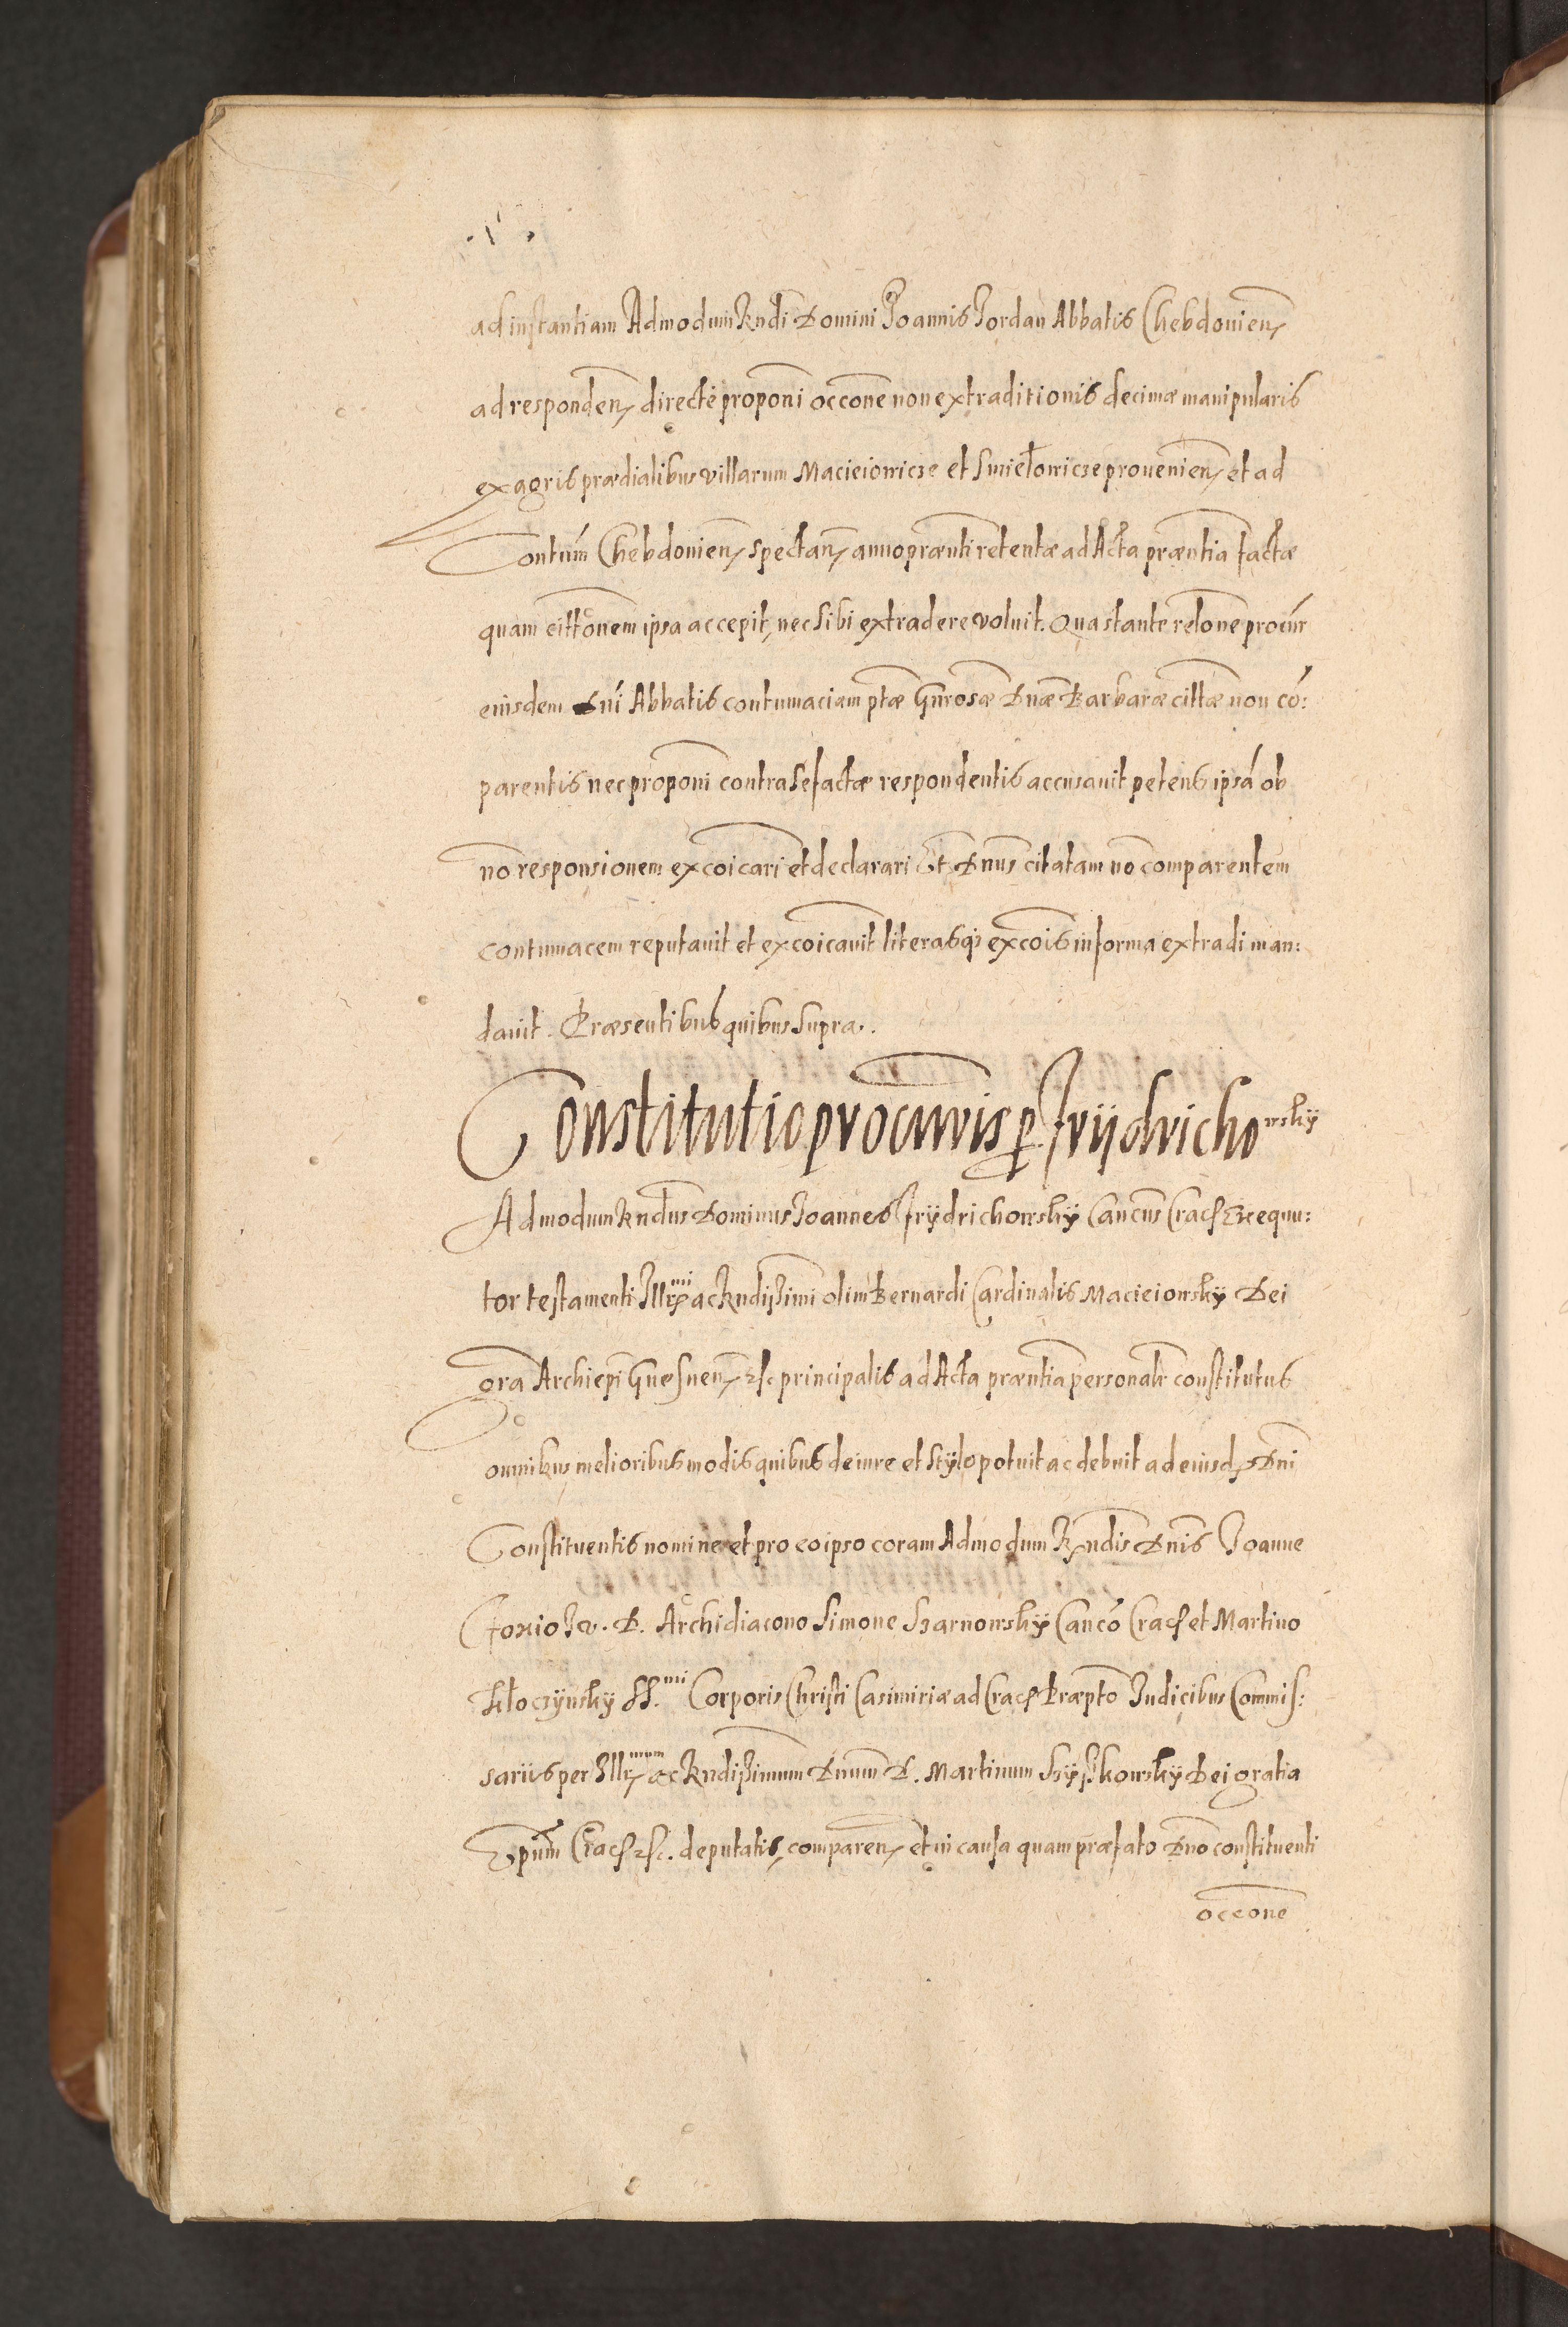 ad instantiam Admodum Rndi Domini Joannis Jordan Abbatis Chebdouien
ad responden directe proponi occone non extraditionis decimæ manipularis
ex agris prædialibus villarum Macieiowicze et Smiełowicze prouenien et ad
Contum Chebdouien spectan anno prænti retentæ ad Acta præntia factæ
quam cittonem ipsa accepit, nec sibi extradere voluit. Qua stante relone procur
eiusdem Dni Abbatis contumaciam ptæ Gnrosæ Dnæ Barbaræ cittæ non co:
parentis nec proponi contra se factæ respondentis accusauit petens ipsa ob
no responsionem excoicari et declarari Et Dnus citatam no comparentem
contumacem reputauit et excoicauit literasq excois in forma extradi man:
dauit. Præsentibus quibus supra.
Constitutio procuris p Frÿdrichowskÿ
Admodum Rndus Dominus Joannes Frÿdrichowskÿ Cancus Crac Exequu:
tor testamenti Illr mi ac Rndißimi olim Bernardi Cardinalis Macieiowskÿ Dei
gra Archiepi Gnesnen etc principalis ad Acta præntia personalr constitutus
omnibus melioribus modis quibus de iure et stÿlo potuit ac debuit ad eiusd Dni
Constituentis nomine et pro eo ipso coram Admodum Rndis Dnis Joanne
Foxio J.V.D. Archidiacono Simone Skarnowskÿ Canco Crac et Martino
Kłoczÿnskÿ SS.mi Corporis Christi Casimiriæ ad Crac Præpto Judicibus Commis:
sariis per Illr mum ac Rndißimum Dnum D. Martinum Szÿßkowskÿ Dei gratia
Epum Crac etc. deputatis, comparen et in causa quam præfato Dno constituenti
occone